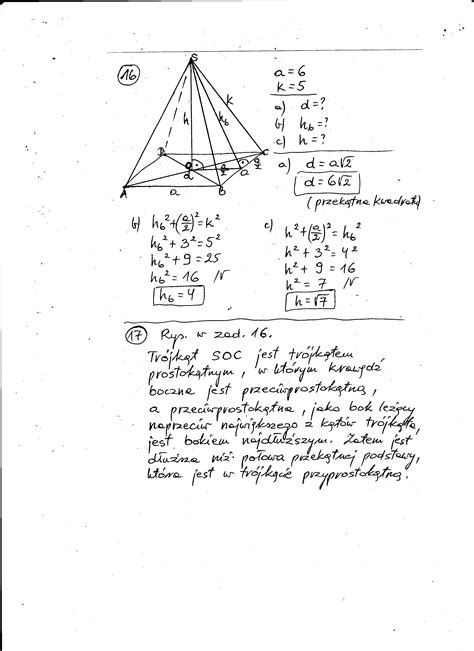 16
S
k
h
h_b
D
C
O
d
a/2
a/2
a
A
a
B
a = 6
k = 5
a) d = ?
b) h_b = ?
c) h = ?
a) d = a√2
d = 6√2
(przekątna kwadratu)
b) h_b² + (a/2)² = k²
h_b² + 3² = 5²
h_b² + 9 = 25
h_b² = 16 /√
h_b = 4
c) h² + (a/2)² = h_b²
h² + 3² = 4²
h² + 9 = 16
h² = 7 /√
h = √7
17 Rys. w zad. 16.
Trójkąt SOC jest trójkątem
prostokątnym, w którym krawędź
boczna jest przeciwprostokątną,
a przeciwprostokątna, jako bok leżący
naprzeciw największego z kątów trójkąta,
jest bokiem najdłuższym. Zatem jest
dłuższa niż połowa przekątnej podstawy,
która jest w trójkącie przyprostokątną.